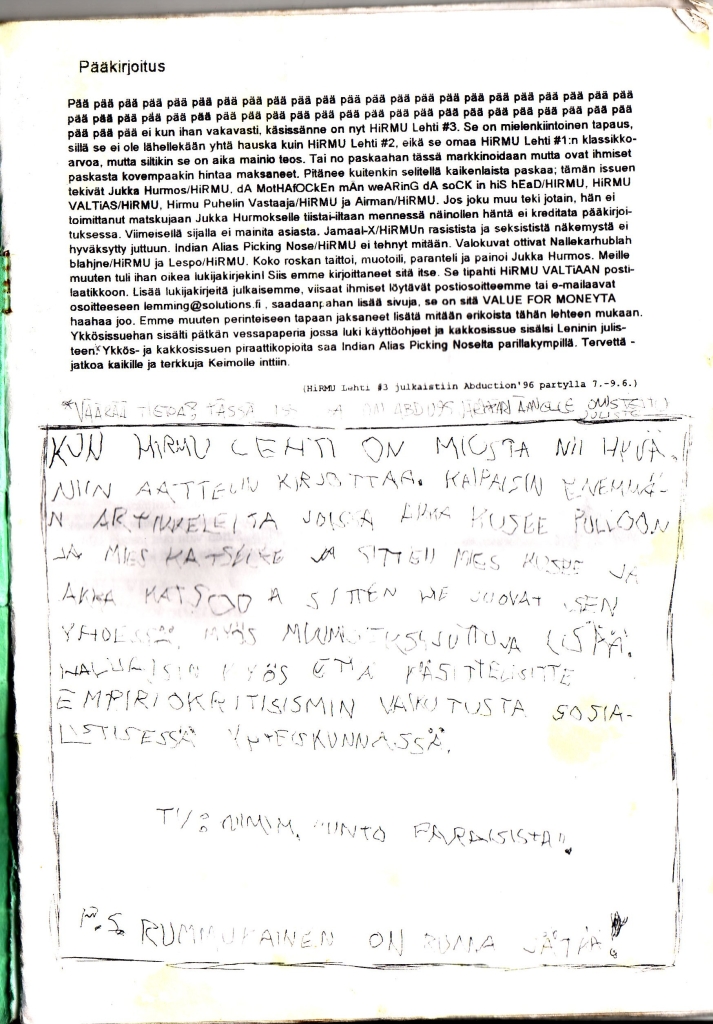 Pääkirjoitus
Pää pää pää pää pää pää pää pää pää pää pää pää pää pää pää pää pää pää pää pää pää pää pää
pää pää pää pää pää pää pää pää pää pää pää pää pää pää pää pää pää pää pää pää pää pää pää
pää pää pää pää ei kun ihan vakavasti, käsissänne on nyt HiRMU Lehti #3. Se on mielenkiintoinen tapaus,
sillä se ei ole lähellekään yhtä hauska kuin HiRMU Lehti #2, eikä se omaa HiRMU Lehti #1:n klassikko-
arvoa, mutta siltikin se on aika mainio teos. Tai no paskaahan tässä markkinoidaan mutta ovat ihmiset
paskasta kovempaakin hintaa maksaneet. Pitänee kuitenkin selitellä kaikenlaista paskaa; tämän issuen
tekivät Jukka Hurmos/HiRMU, dA MotHAfOCkEn mAn weARinG dA soCK in hiS hEaD/HIRMU, HiRMU
VALTiAS/HiRMU, Hirmu Puhelin Vastaaja/HiRMU ja Airman/HiRMU. Jos joku muu teki jotain, hän ei
toimittanut matskujaan Jukka Hurmokselle tiistai-iltaan mennessä näinollen häntä ei kreditata pääkirjoi-
tuksessa. Viimeisellä sijalla ei mainita asiasta. Jamaal-X/HiRMUn rasistista ja seksististä näkemystä ei
hyväksytty juttuun. Indian Alias Picking Nose/HiRMU ei tehnyt mitään. Valokuvat ottivat Nallekarhublah
blahjne/HiRMU ja Lespo/HiRMU. Koko roskan taittoi, muotoili, paranteli ja painoi Jukka Hurmos. Meille
muuten tuli ihan oikea lukijakirjekin! Siis emme kirjoittaneet sitä itse. Se tipahti HiRMU VALTiAAN posti-
laatikkoon. Lisää lukijakirjeitä julkaisemme, viisaat ihmiset löytävät postiosoitteemme tai e-mailaavat
osoitteeseen lemming@solutions.fi , saadaanpahan lisää sivuja, se on sitä VALUE FOR MONEYTA
haahaa joo. Emme muuten perinteiseen tapaan jaksaneet lisätä mitään erikoista tähän lehteen mukaan.
Ykkösissuehan sisälsi pätkän vessapaperia jossa luki käyttöohjeet ja kakkosissue sisälsi Leninin julis-
teen.* Ykkös- ja kakkosissuen piraattikopioita saa Indian Alias Picking Noselta parillakympillä. Tervettä -
jatkoa kaikille ja terkkuja Keimolle inttiin.
(HiRMU Lehti #3 julkaistiin Abduction'96 partylla 7.-9.6.)
TÄSSÄ ON OMISTETTU
JULISTE
KUN HIRMU LEHTI ON MIUSTA NII HYVÄ,
NIIN AATTELIN KIRJOITTAA. KAIPAISIN ENEMMÄ-
N ARTIKKELEITA JOISSA AKKA KUSEE PULLOON
JA MIES KATSELEE JA SITTEN MIES KUSEE JA
AKKA KATSOO JA SITTEN NE JUOVAT SEN
YHDESSÄ. MYÖS JUTTUJA LISÄÄ.
HALUAISIN MYÖS ETTÄ KÄSITTELISITTE
EMPIRIOKRITISISMIN VAIKUTUSTA SOSIA-
LISTISESSA YHTEISKUNNASSA.
T:/: NIMIM. "UNTO PARAISISTA".
P.S. RUMMUKAINEN ON RUMA JÄTKÄ!